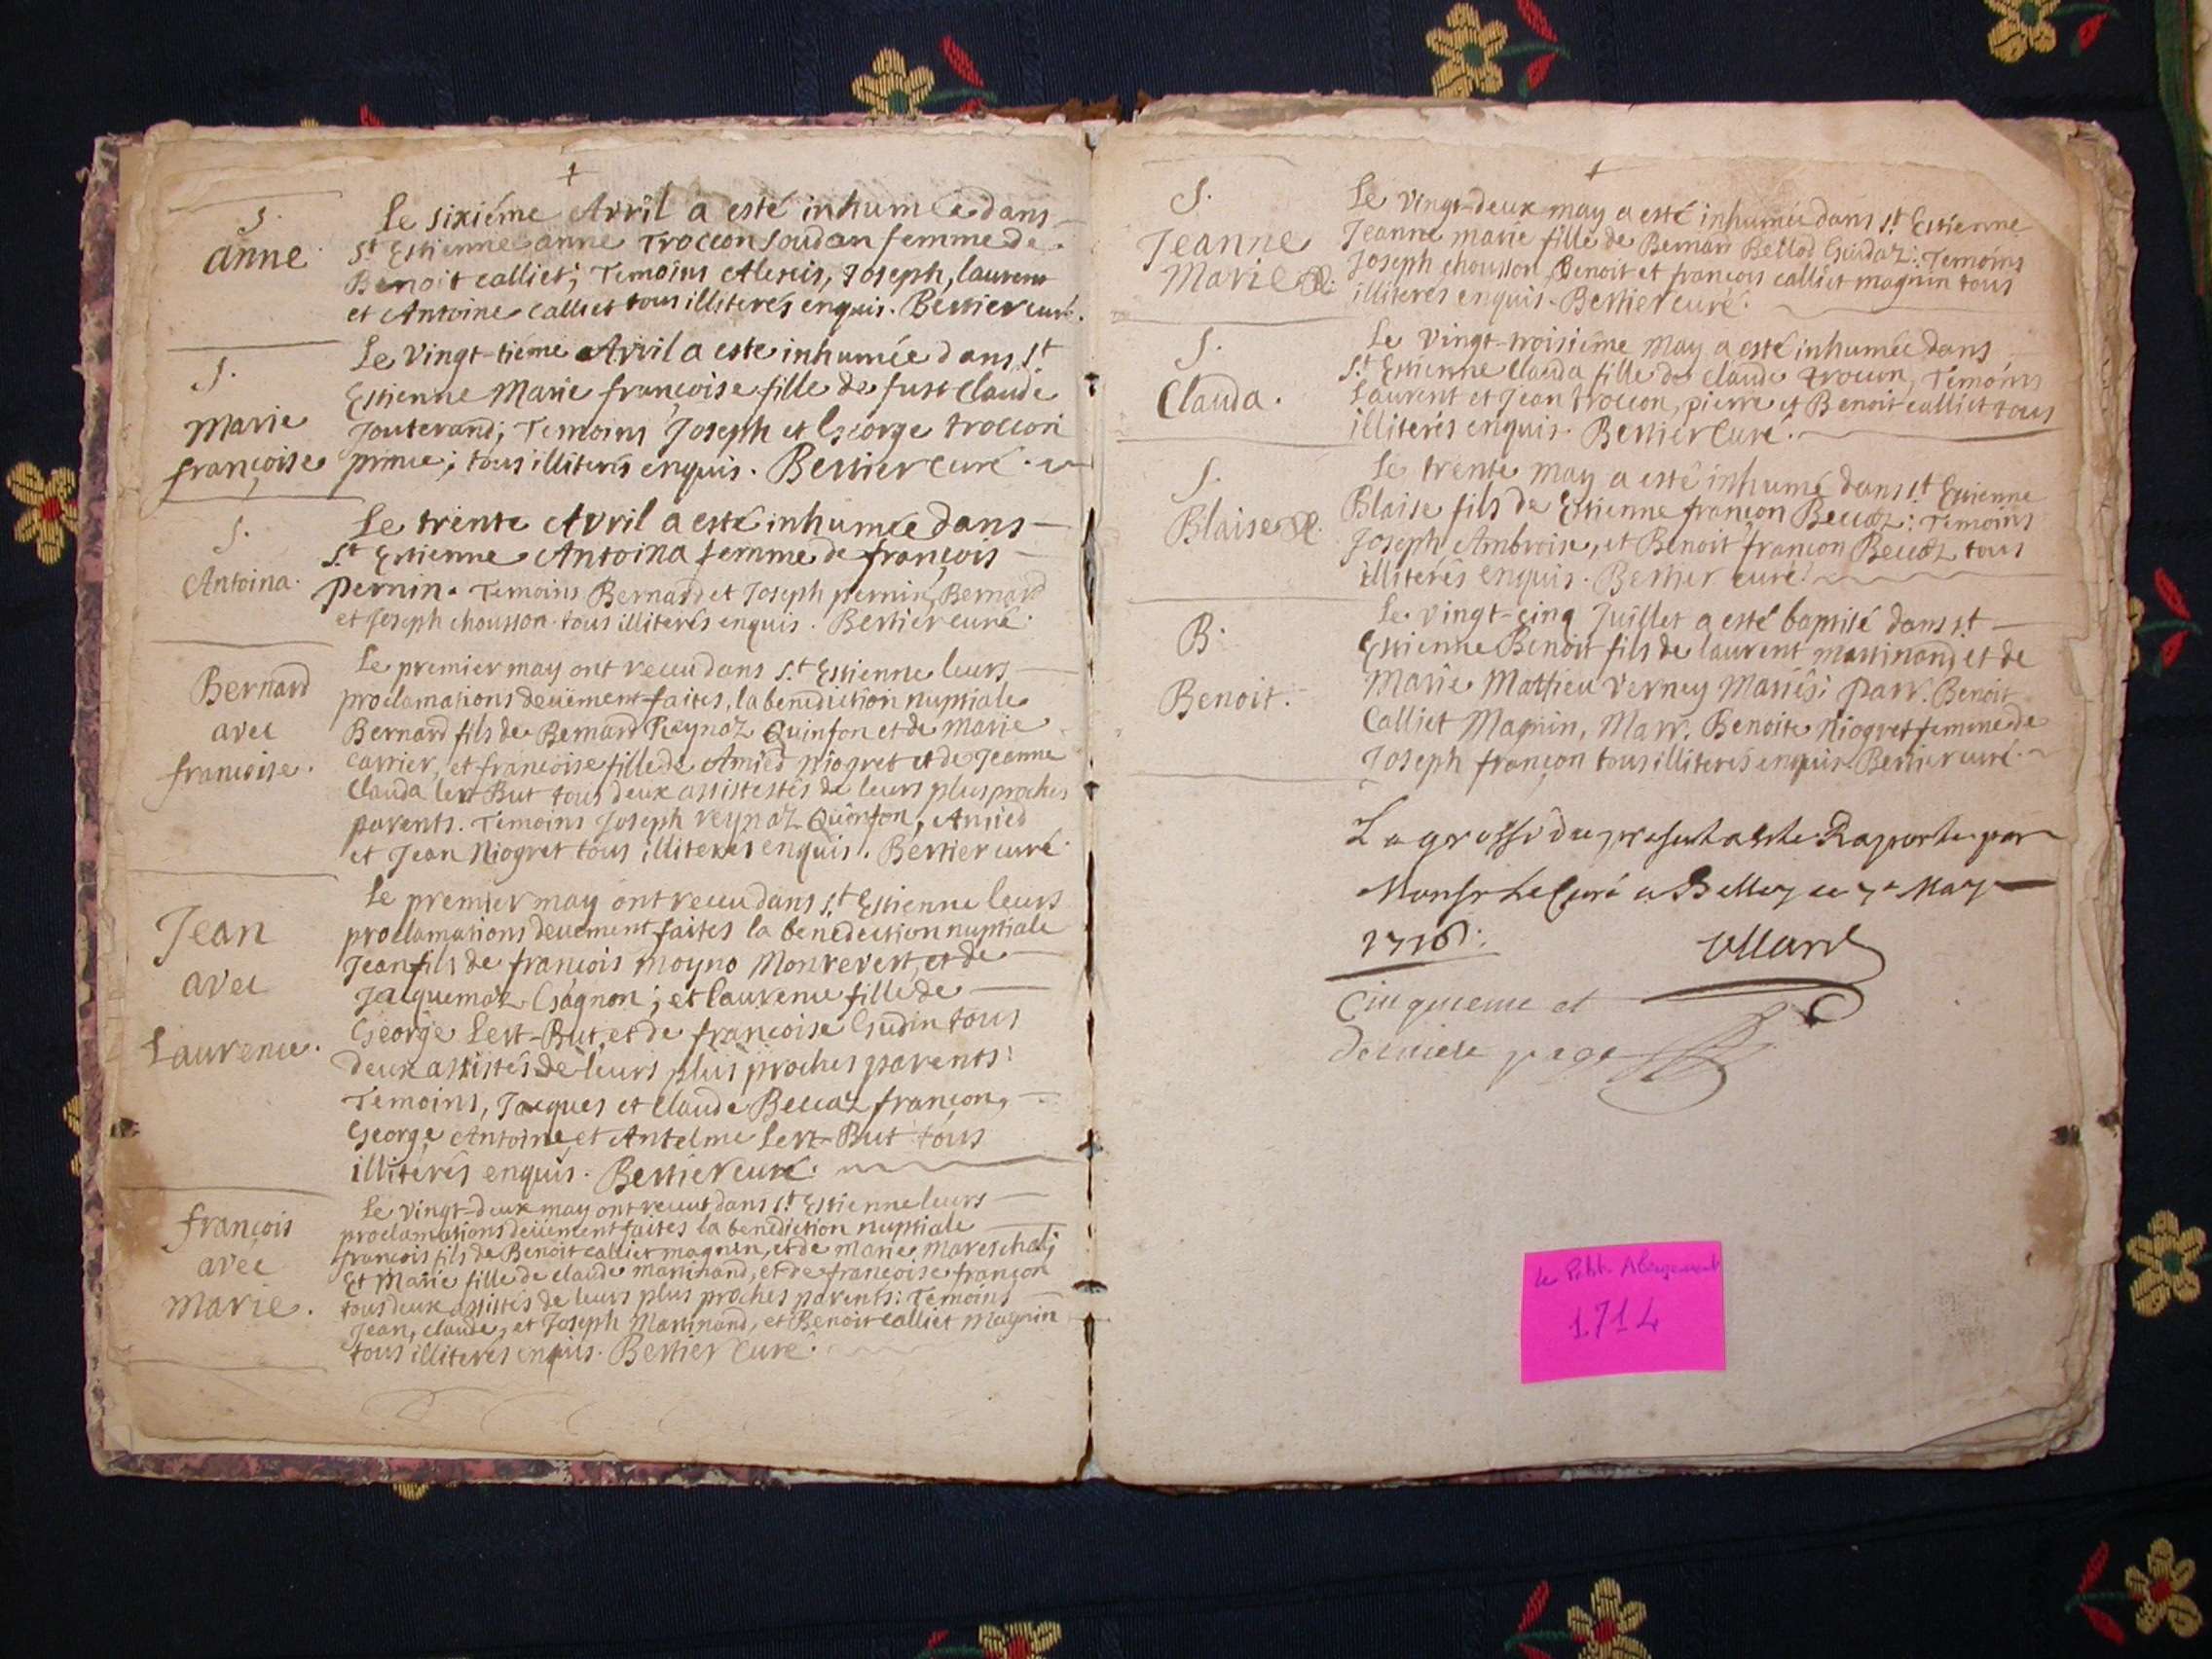 +
S.
anne.
Le sixiéme Avril a esté inhumée dans
St Estienne anne Troccon Soudan femme de
Benoit calliet; Temoins Alexis, Joseph, laurent
et Antoine calliet tous illiterés enquis. Bertier curé.
S.
Marie
françoise
Le Vingt-tiéme Avril a esté inhumée dans St
Estienne Marie françoise fille de fust Claude
Jouterand; Temoins Joseph et George troccon
prince; tous illiterés enquis. Bertier curé.
S.
Antoina.
Le trente Avril a esté inhumée dans
St Estienne Antoina femme de françois
pernin. Temoins Bernard et Joseph pernin, Bernard
et Joseph chousson tous illiterés enquis. Bertier curé.
Bernard
avec
françoise.
Le premier may ont receu dans St Estienne leurs
proclamations deuëment faites, la benediction nuptiale
Bernard fils de Bernard Reynaz Quinson et de Marie
carrier, et françoise fille de Amied Niogret et de Jeanne
Clauda lert But tous deux assistestés de leurs plus proches
parents. Temoins Joseph reynaz Quinson, Amied
et Jean Niogret tous illiterés enquis. Bertier curé.
Jean
avec
Laurence.
Le premier may ont receu dans St Estienne leurs
proclamations deuement faites la benediction nuptiale
Jean fils de françois moyno Monrevert, et de
Jacquemaz Gagnon; et laurence fille de
George Lert-But, et de françoise Gudin tous
deux assistés de leurs plus proches parents:
Temoins, Jacques et Claude Beccaz françon,
George Antoine et Antelme Lert-But tous
illiterés enquis. Bertier curé.
françois
avec
Marie.
Le vingt-deux may ont receut dans St Estienne leurs
proclamations deüement faites la benediction nuptiale
françois fils de Benoit calliet magnin, et de Marie Mareschal;
Et Marie fille de claude martinand, et de françoise françon
tous deux assistés de leurs plus proches parents: Temoins
Jean, claude, et Joseph Martinand, et Benoit calliet Magnin
tous illiterés enquis. Bertier Curé.
+
S.
Jeanne
Marie
Le Vingt-deux may a esté inhumée dans St Estienne
Jeanne marie fille de Bernard Bellod Guidaz: Temoins
Joseph chousson, Benoit et françois calliet magnin tous
illiterés enquis. Bertier curé.
S.
Clauda.
Le Vingt-troisiéme May a esté inhumée dans
St Estienne Clauda fille de claude troccon, Temoins
Laurent et Jean troccon, pierre et Benoit calliet tous
illiterés enquis. Bertier Curé.
S.
Blaise
Le trente may a esté inhumé dans St Estienne
Blaise fils de Estienne françon Beccaz: Temoins
Joseph Ambroise, et Benoit françon Beccaz tous
illiterés enquis. Bertier curé.
B.
Benoit.
Le vingt-cinq Juillet a esté baptisé dans St
Estienne Benoit fils de laurent martinand et de
Marie Mathieu Verney Mariés: parr. Benoit
Calliet Magnin, Marr. Benoite Niogret femme de
Joseph françon tous illiterés enquis. Bertier curé.
La grosse du present a esté Raportée par
Monsr Le Curé a Belley ce 7e May
1716.
Cinquieme et
derniere page
Le Petit Abergement
1714